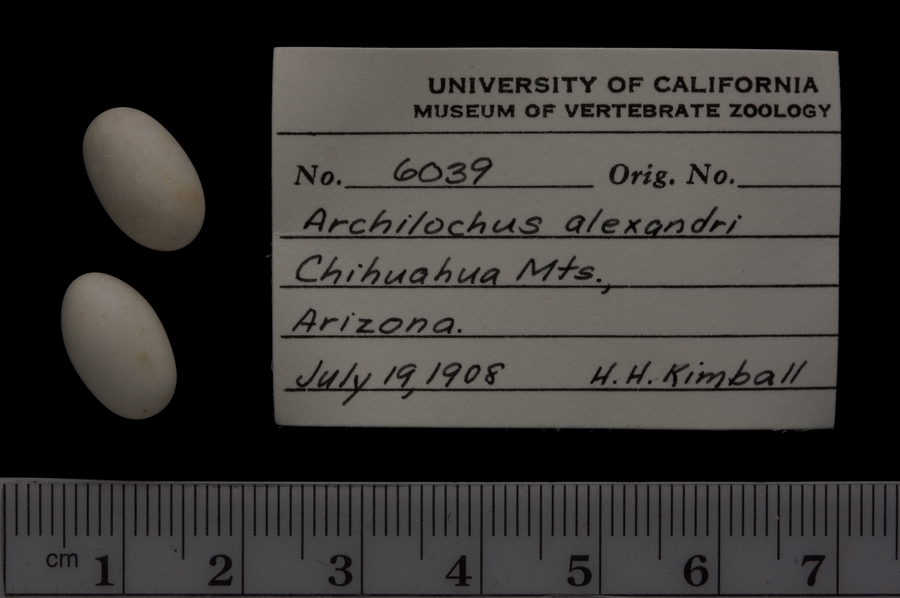 UNIVERSITY OF CALIFORNIA
MUSEUM OF VERTEBRATE ZOOLOGY
No. 6039 Orig. No.
Archilochus alexandri
Chihuahua Mts.,
Arizona.
July 19, 1908 H. H. Kimball
cm 1 2 3 4 5 6 7